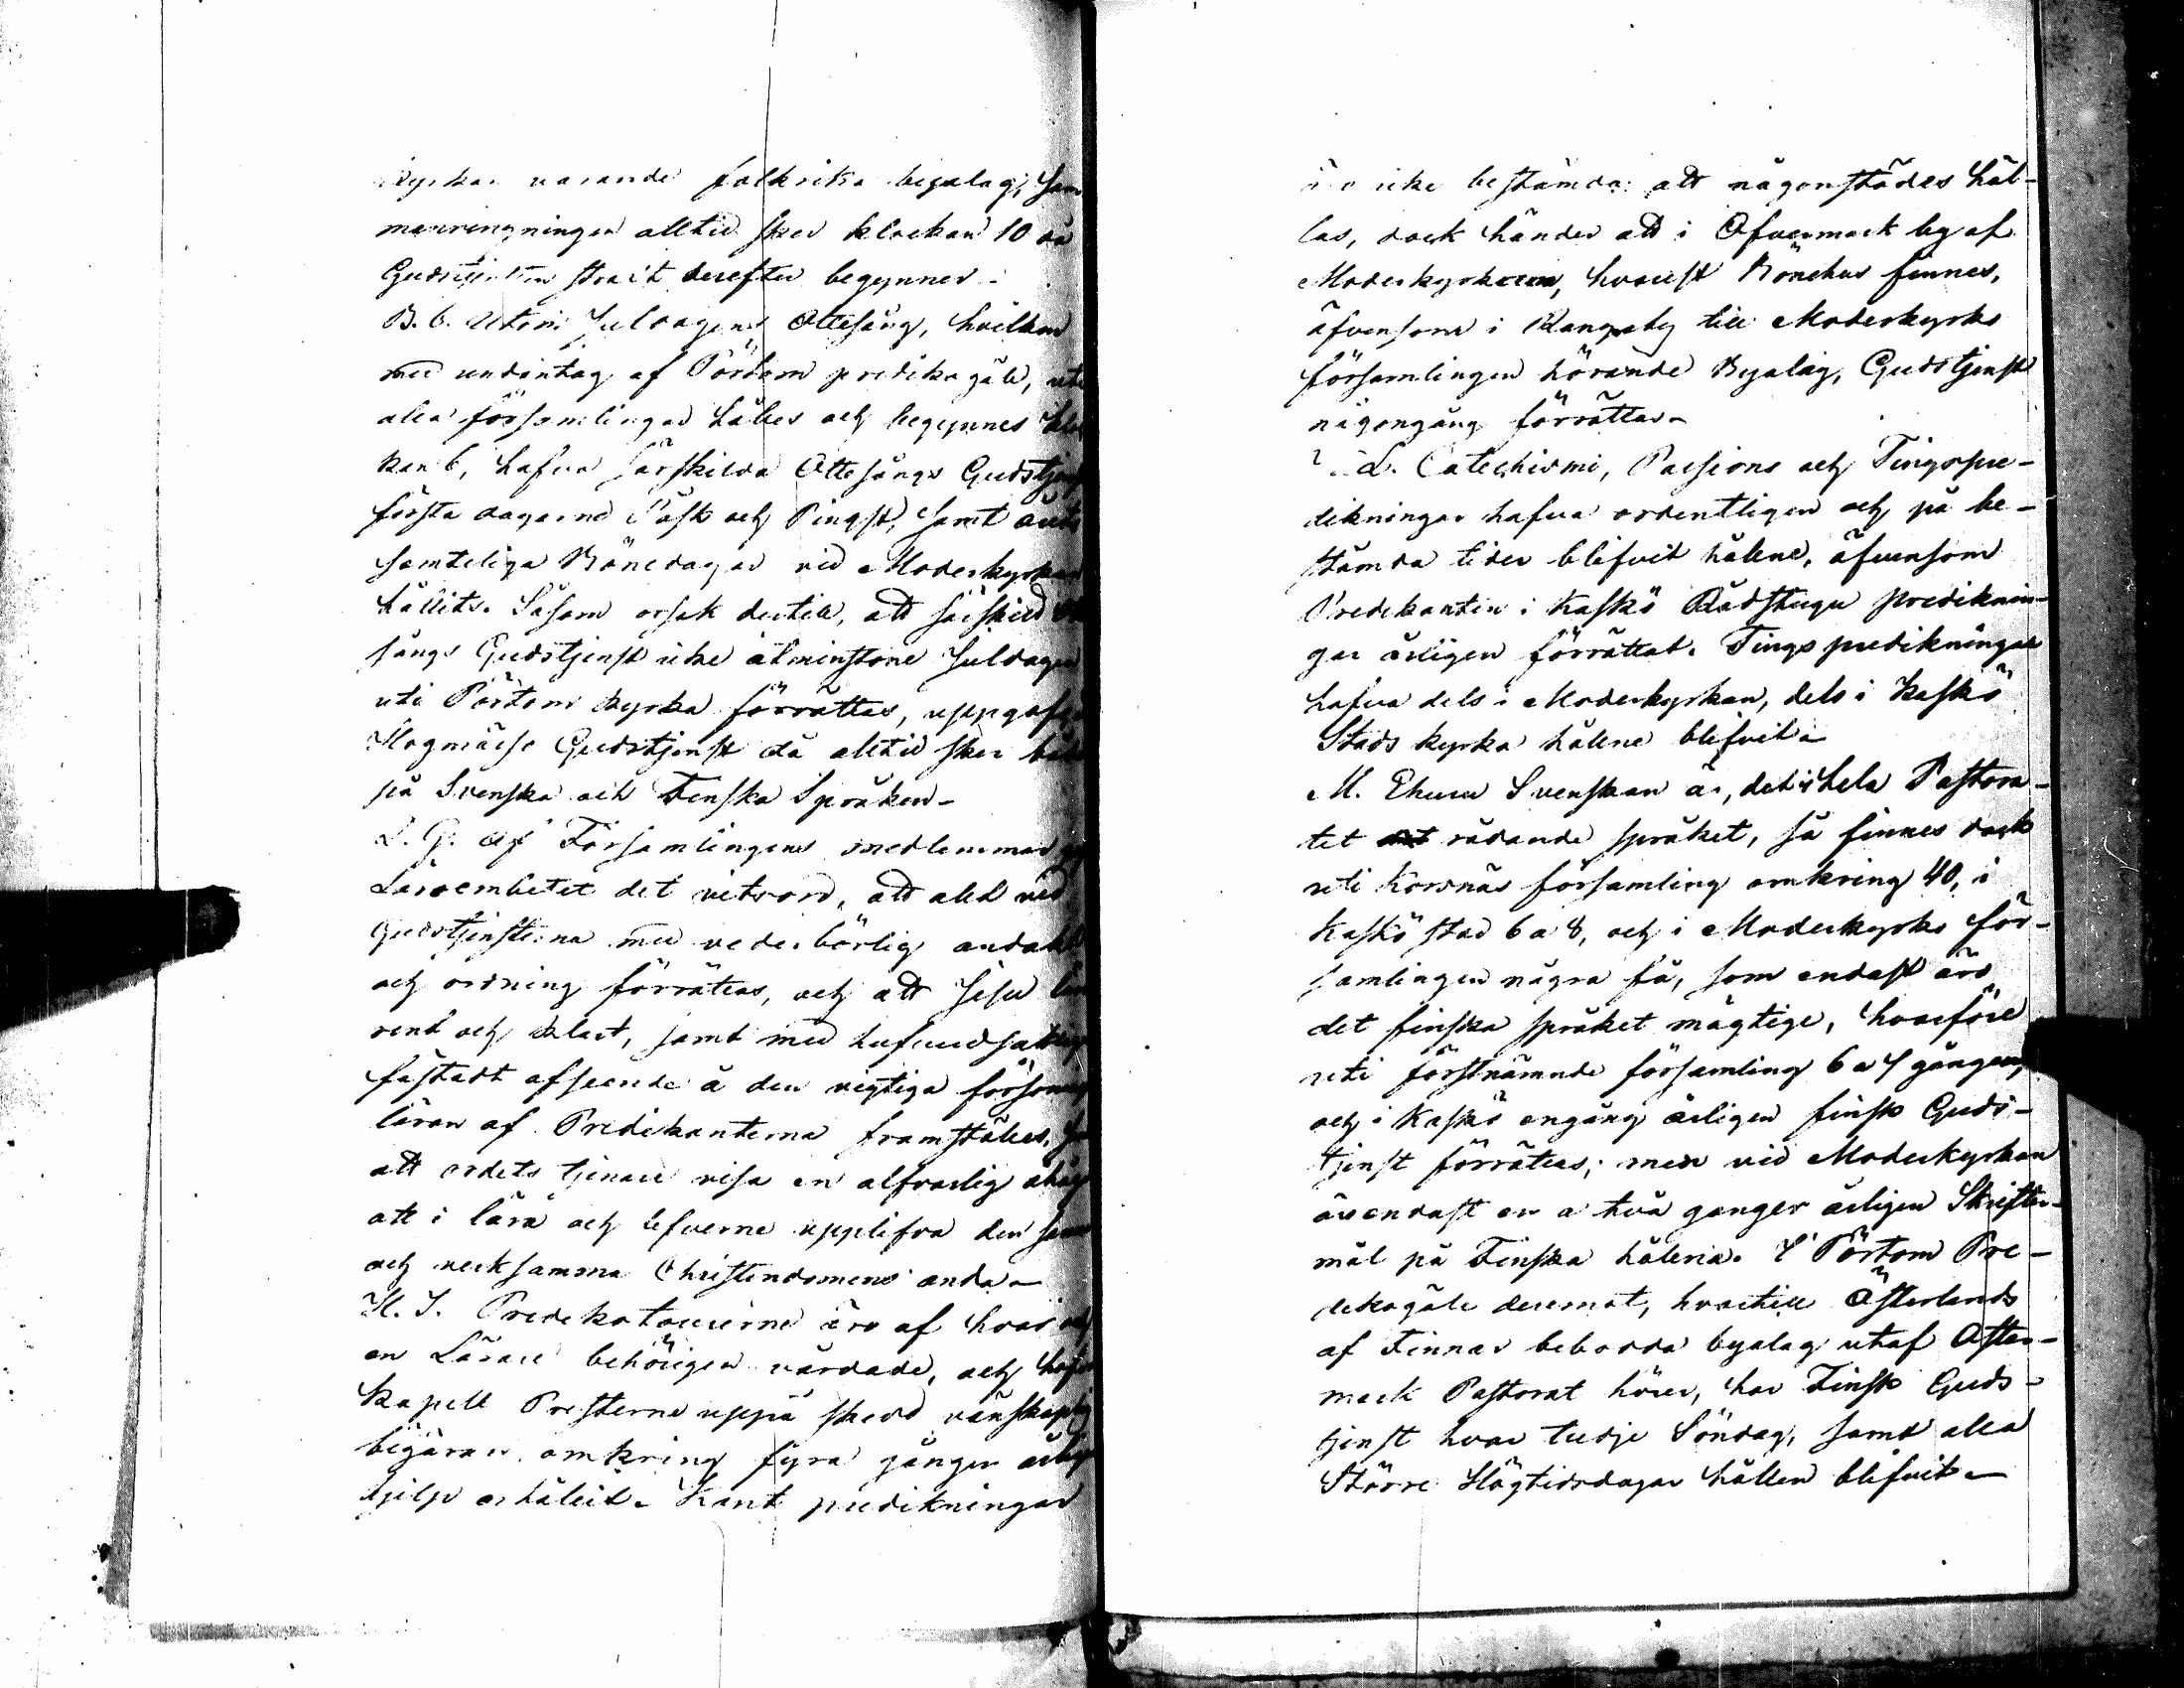 kyrkan varande folkrika byalag, Sam
manringningen alltid sker klockan 10 då
Gudstjensten strax derefter begynner.
B. C. Utom Juldagens Ottesång, hvilken
med undantag af Pörtom predikogäld, uti
alla församlingar hålles och begynnes kloc
kan 6, hafva särskilda Ottesångs Gudstjenst
första dagarne Påsk och Pingst, samt
samteliga Bönedagar vid Moderkyrkan
hållits. Såsom orsak dertill, att särskild Ot
sångs Gudstjenst icke åtminstone Juldagen
uti Pörtom kyrka förrättas, uppgafs
Högmässe Gudstjenst då alltid sker både
på Svenska och Finska Språken-
D. G. Af Församlingens medlemmar
Läroembetet det vitsord, att allt vid
Gudstjensterna med vederbörlig andakt
och ordning förrättas, och att Jesu
rent och klart, samt med hufvudsakligt
fästadt afseende å den vigtiga försonings
läran af Predikanterna framställes,
att ordets tjenare visa en alfvarlig åhåga
att i lära och lefverne upplifva den sanna
och verksamma Christendomens anda-
H. I. Predikotourerne äro af hvar och
en Lärare behörigen vårdade, och hafva
Kapell Presterne uppå skedd vänskaplig
begäran omkring fyra gånger årligen
hjelp erhållit- Kant predikningar
äro icke bestämda att någonstädes hål-
las, dock händer att i Öfvermark by af
Moderkyrkan, hvarest Bönehus finnes,
äfvensom i Rangsby till Moderkyrko
församlingen hörande Byalag, Gudstjenst
någongång förrättas-
L. Catechismi, Passions och Tingspre-
dikningar hafva ordentligen och på be-
stämda tider blifvit hållne, äfvensom
Predikanten i Kaskö Rådstugu prediknin-
gar årligen förrättat. Tings predikningar
hafva dels i Moderkyrkan, dels i Kaskö
Stads kyrka hållne blifvit-
M. Ehuru Svenskan är, det i hela Pastora-
tet rådande språket, så finnes dock
uti Korsnäs församling omkring 40, i
Kaskö stad 6 a 8, och i Moderkyrko för-
samlingen några få, som endast äro
det finska språket mägtige, hvarföre
uti förstnämnde församling 6 a 7 gånger,
och i Kaskö engång årligen finsk Guds-
tjenst förrättas; men vid Moderkyrkan
är endast en a två gånger årligen Skrifter-
mål på Finska hållna. I Pörtom Pre-
dikogäll deremot, hvartill Österlands
af Finnar bebodda byalag utaf Öster-
mark Pastorat hörer, har Finsk Guds-
tjenst hvar tredje Söndag, samt alla
Större Högtidsdagar hållen blifvit-